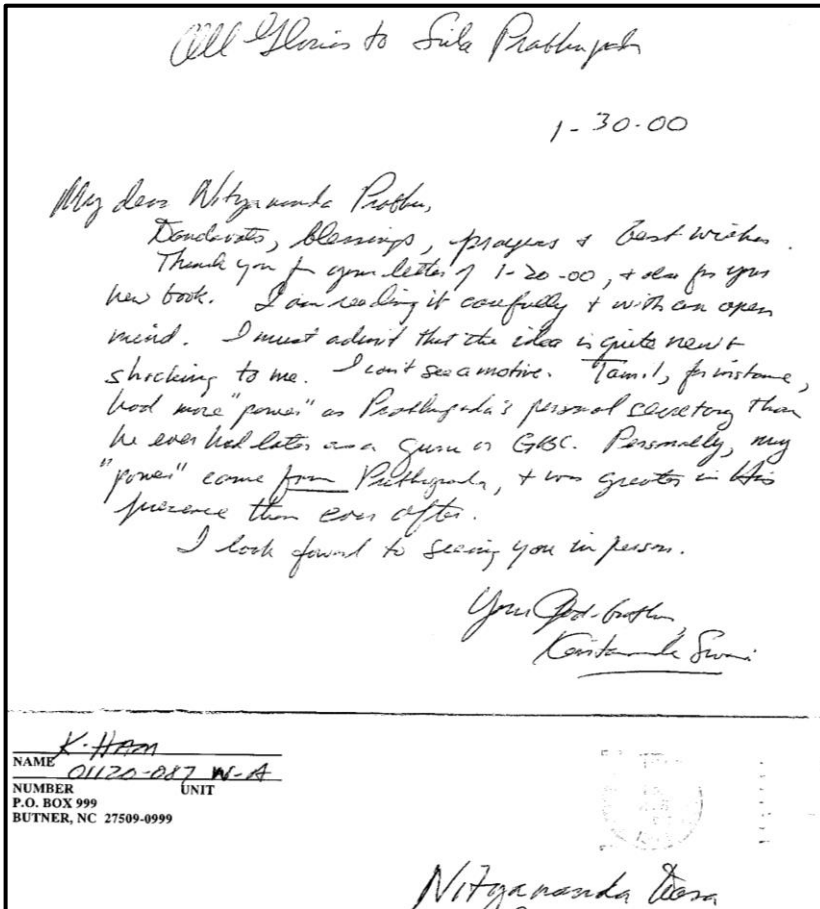 All Glories to Srila Prabhupada
1-30-00
My dear Nityananda Prabhu,
Dandavats, blessings, prayers & best wishes.
Thank you for your letter of 1-20-00, & also for your
new book. I am reading it carefully & with an open
mind. I must admit that the idea is quite new &
shocking to me. I can't see a motive. Tamal, for instance,
had more "power" as Prabhupada's personal secretary than
he ever had later as a guru or GBC. Personally, my
"power" came from Prabhupada, & was greater in His
presence than ever after.
I look forward to seeing you in person.
Your God-brother,
Kirtanananda Swami
NAME K. HAM
01120-087 W-A
NUMBER UNIT
P.O. BOX 999
BUTNER, NC 27509-0999
Nityananda Dasa